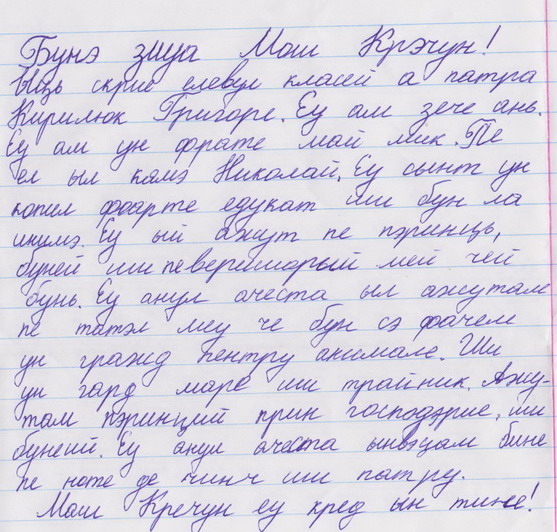 Бунэ зиуа Мош Крэчун!
Ыць скрие елевул класей а патра
Кирилюк Григоре. Еу ам зече ань.
Еу ам ун фрате май мик. Пе
ел ыл камэ Николай. Еу сынт ун
копил фоарте едукат ши бун ла
инимэ. Еу ый ажут пе пэринць,
буней ши певеришорый мей чей
бунь. Еу анул ачеста ыл ажутам
пе татэл меу че бун сэ фачем
ун гражд пентру анимале. Ши
ун гард маре ши трайник. Ажу-
там пэринций прин господэрие, ши
бунеий. Еу анул ачеста ынвэцам бине
пеноте де чинч ши патру.
Мош Кречун еу кред ын тине!